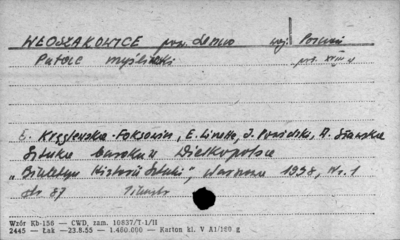 WŁOSZAKOWICE pow. Leszno woj. Poznań
Pałac myśliwski poł. XVIII w
E. Kręglewska-Foksowicz, E. Linette, J. Powidzki, A. Sławska
Sztuka baroku w Wielkopolsce
„Biuletyn Historii Sztuki", Warszawa 1958, Nr. 1
str 87 ilustr
Wzór Kb-156 — CWD, zam. 10837/T-1/II
2445 — Łak —23.8.55 — 1.460.000 — Karton kl. V A1/160 g